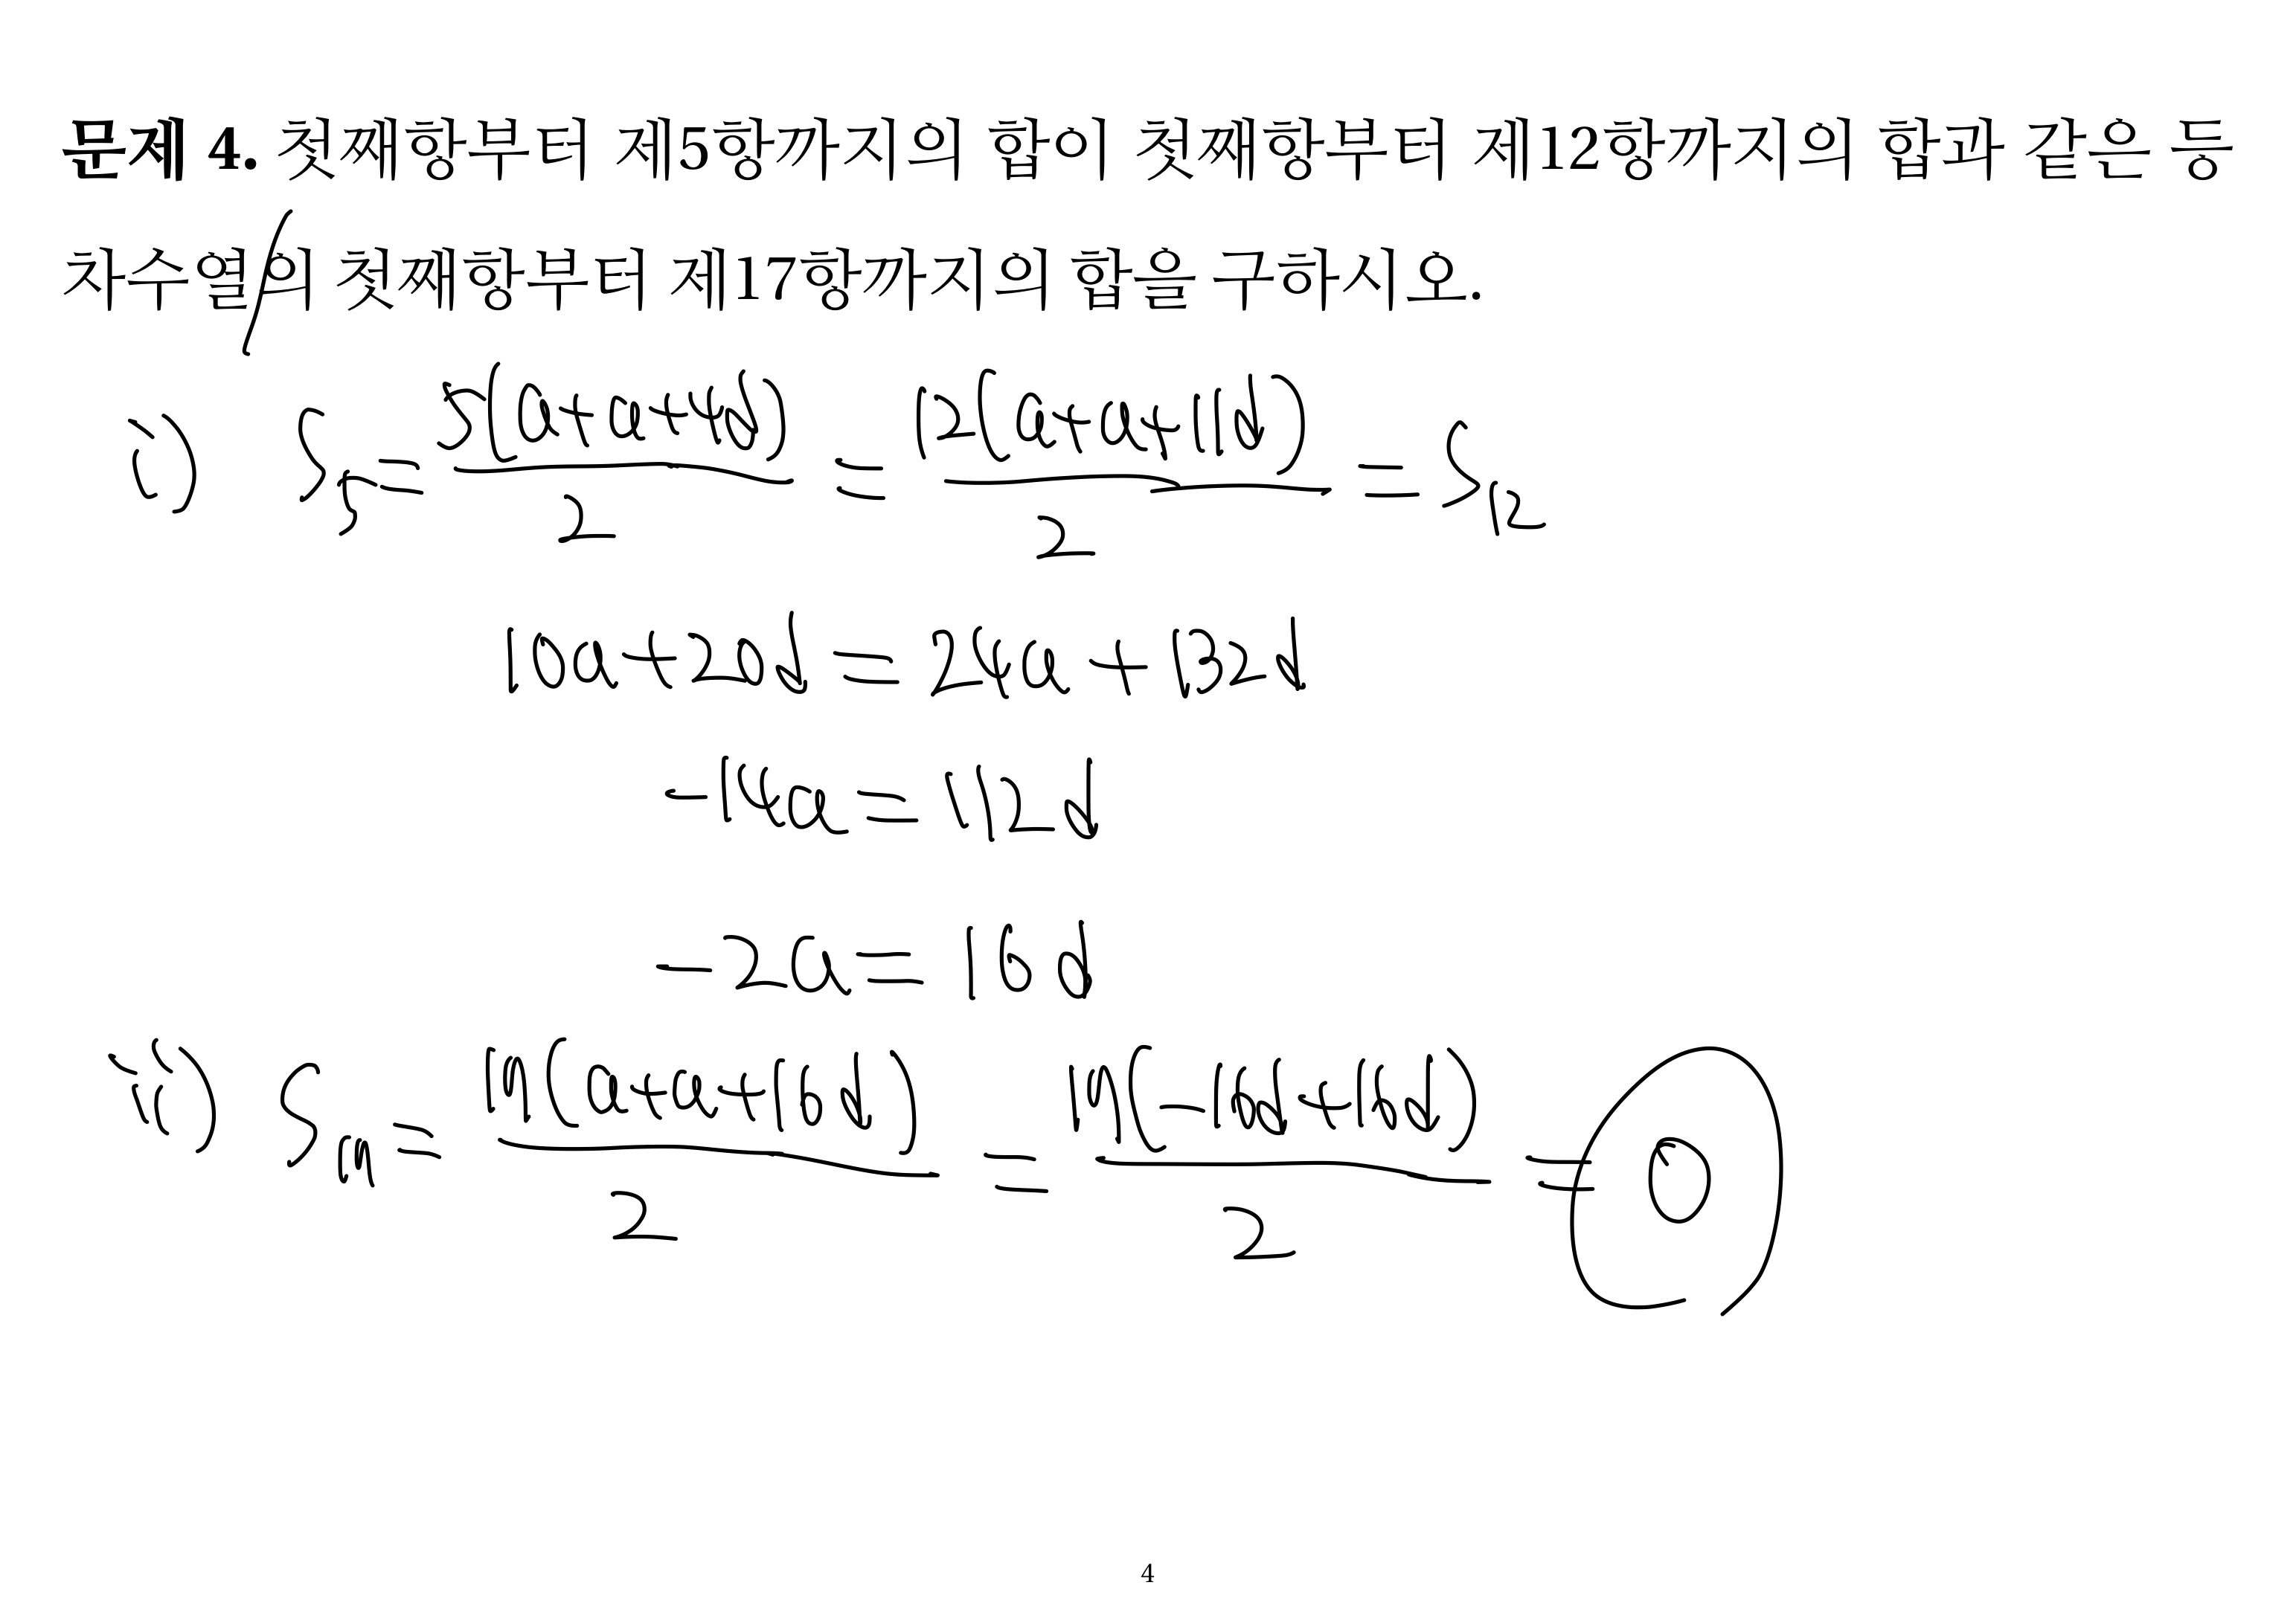 문제 4. 첫째항부터 제5항까지의 합이 첫째항부터 제12항까지의 합과 같은 등
차수열의 첫째항부터 제17항까지의 합을 구하시오.
i) S_5 = 5(a+a+4d)/2 = 12(a+a+11d)/2 = S_12
10a+20d = 24a+132d
-14a = 112d
-2a = 16d
ii) S_17 = 17(a+a+16d)/2 = 17(-16d+16d)/2 = 0
4